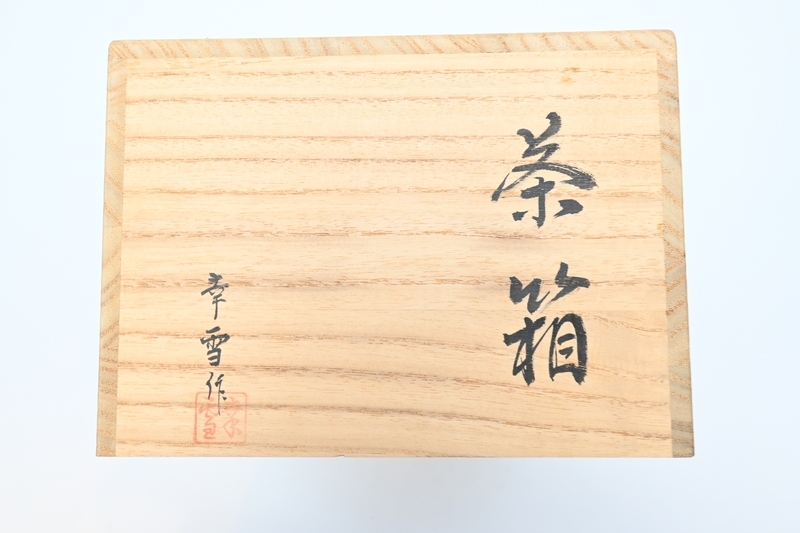 茶箱
幸雪作